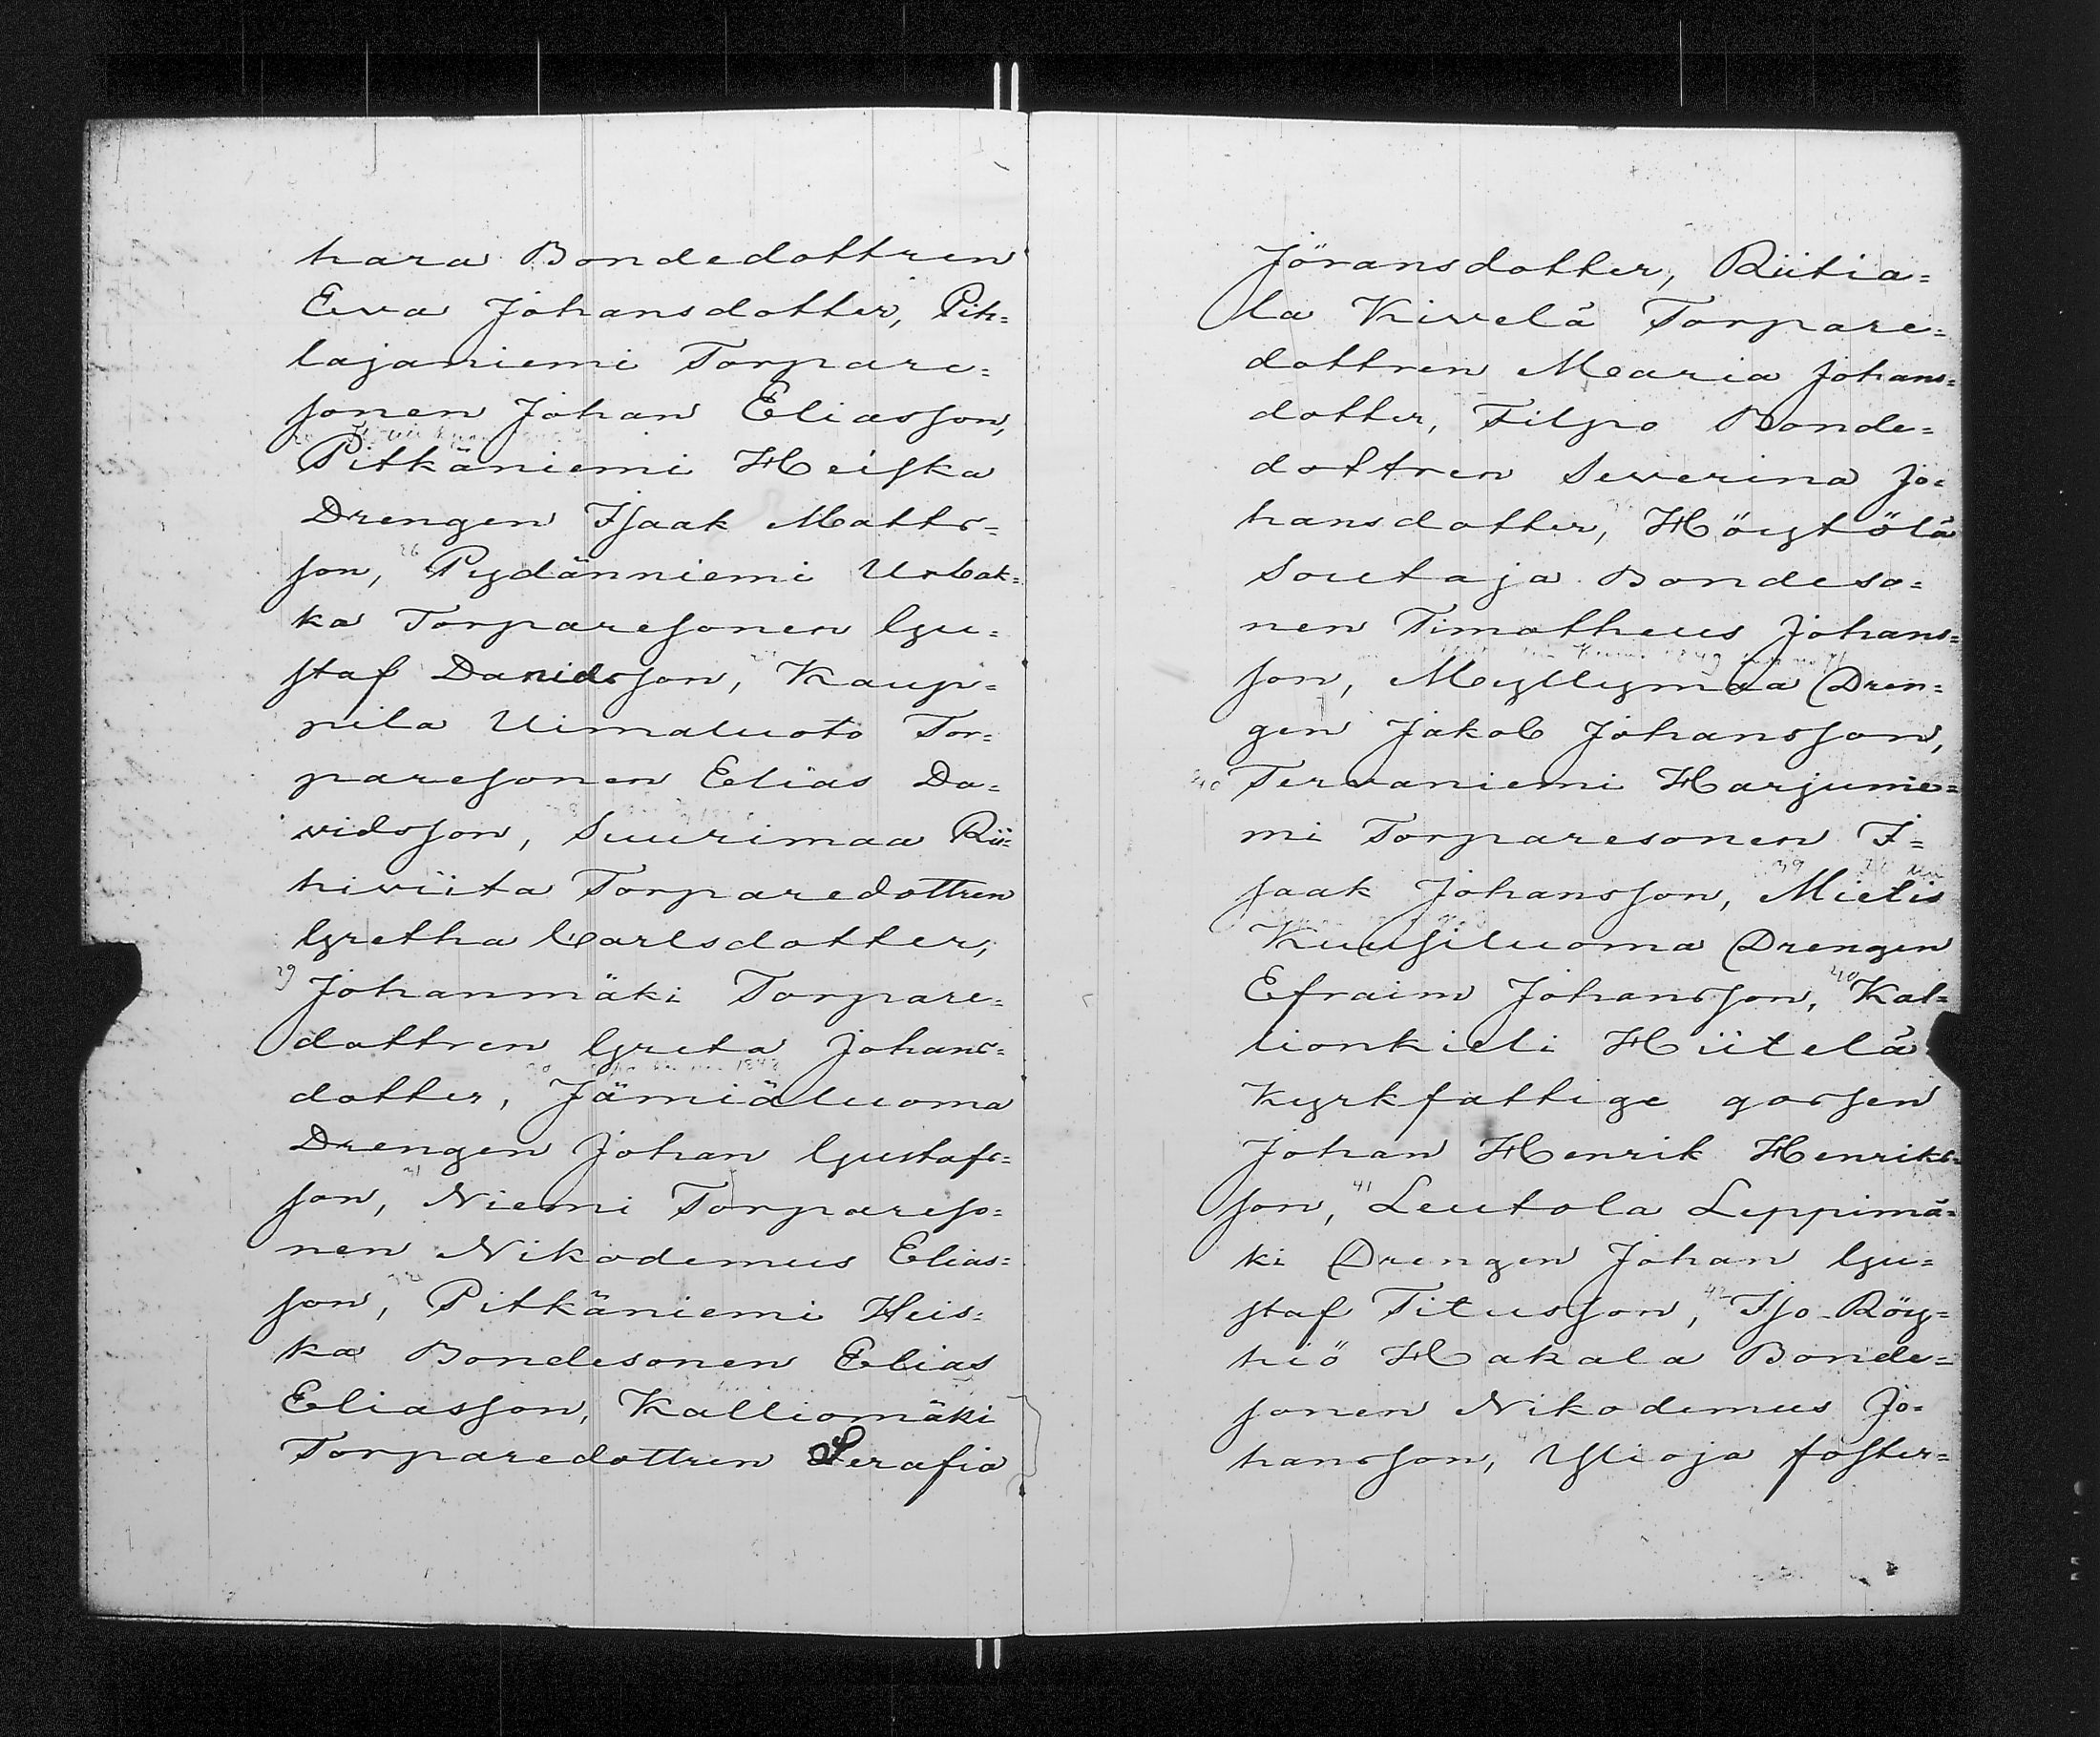 hara Bondedottren
Eva Johansdotter, Pih=
lajaniemi Torpare=
sonen Johan Eliasson,
Pitkäniemi Heiska
Drengen Isaak Matts=
26
son, Pydänniemi Urbak=
ka Torparesonen Gu=
staf Davidsson, Kaup=
pila Uimaluoto Tor=
paresonen Elias Da=
vidsson, Suurimaa Rii=
hiviita Torparedottren
Gretha Carlsdotter,
29
Johanmäki Torpare=
dottren Greta Johans=
dotter, Jämiäluoma
Drengen Johan Gustafs=
31
son, Niemi Torpareso=
nen Nikodemus Elias=
son, Pitkäniemi Heis=
ka Bondesonen Elias
Eliasson, Kalliomäki
Torparedottren Serafia
Jöransdotter, Riitia=
la Kivelä Torpare=
dottren Maria Johans=
dotter, Filpo Bonde=
dottren Severina Jo=
hansdotter, Höytölä
Soutaja Bondeso=
nen Timotheus Johans=
son, Myllymaa Dren=
gen Jakob Johansson,
Tervaniemi Harjunie=
mi Torparesonen I=
39
saak Johansson, Mietis
Kuusiluoma Drengen
40
Efraim Johansson, Kal=
lionkieli Hiitelä
Kyrkfattige gossen
Johan Henrik Henriks=
41
son, Leutola Leppimä=
ki Drengen Johan Gu=
42
staf Titusson, Iso-Röy=
hiö Hakala Bonde=
sonen Nikodemus Jo=
hansson, Ylioja foster=